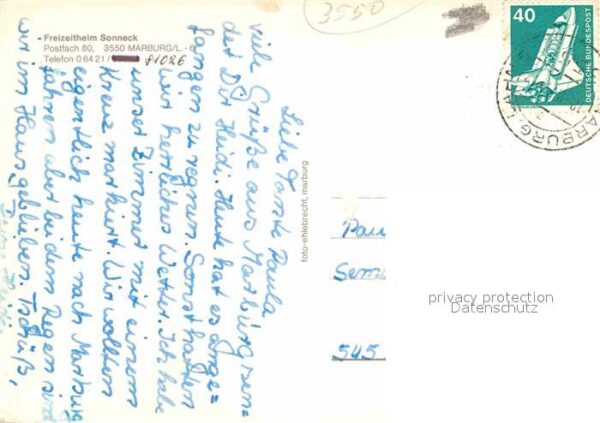 3550
Freizeitheim Sonneck
Postfach 80, 3550 MARBURG/L.-6
Telefon 06421/ 81026
40
DEUTSCHE BUNDESPOST
MARBURG
Liebe Tante Paula
viele Grüße aus Marburg sen=
det Dir Heidi. Heute hat es ange=
fangen zu regnen. Sonst hatten
wir herrliches Wetter. Ich habe
unser Zimmer mit einem
Kreuz markiert. Wir wollten
eigentlich heute nach Marburg
fahren aber bei dem Regen sind
wir im Haus geblieben. Tschüß,
Deine Heidi
foto-ehlebrecht, marburg
Pau
Sem
545
privacy protection
Datenschutz